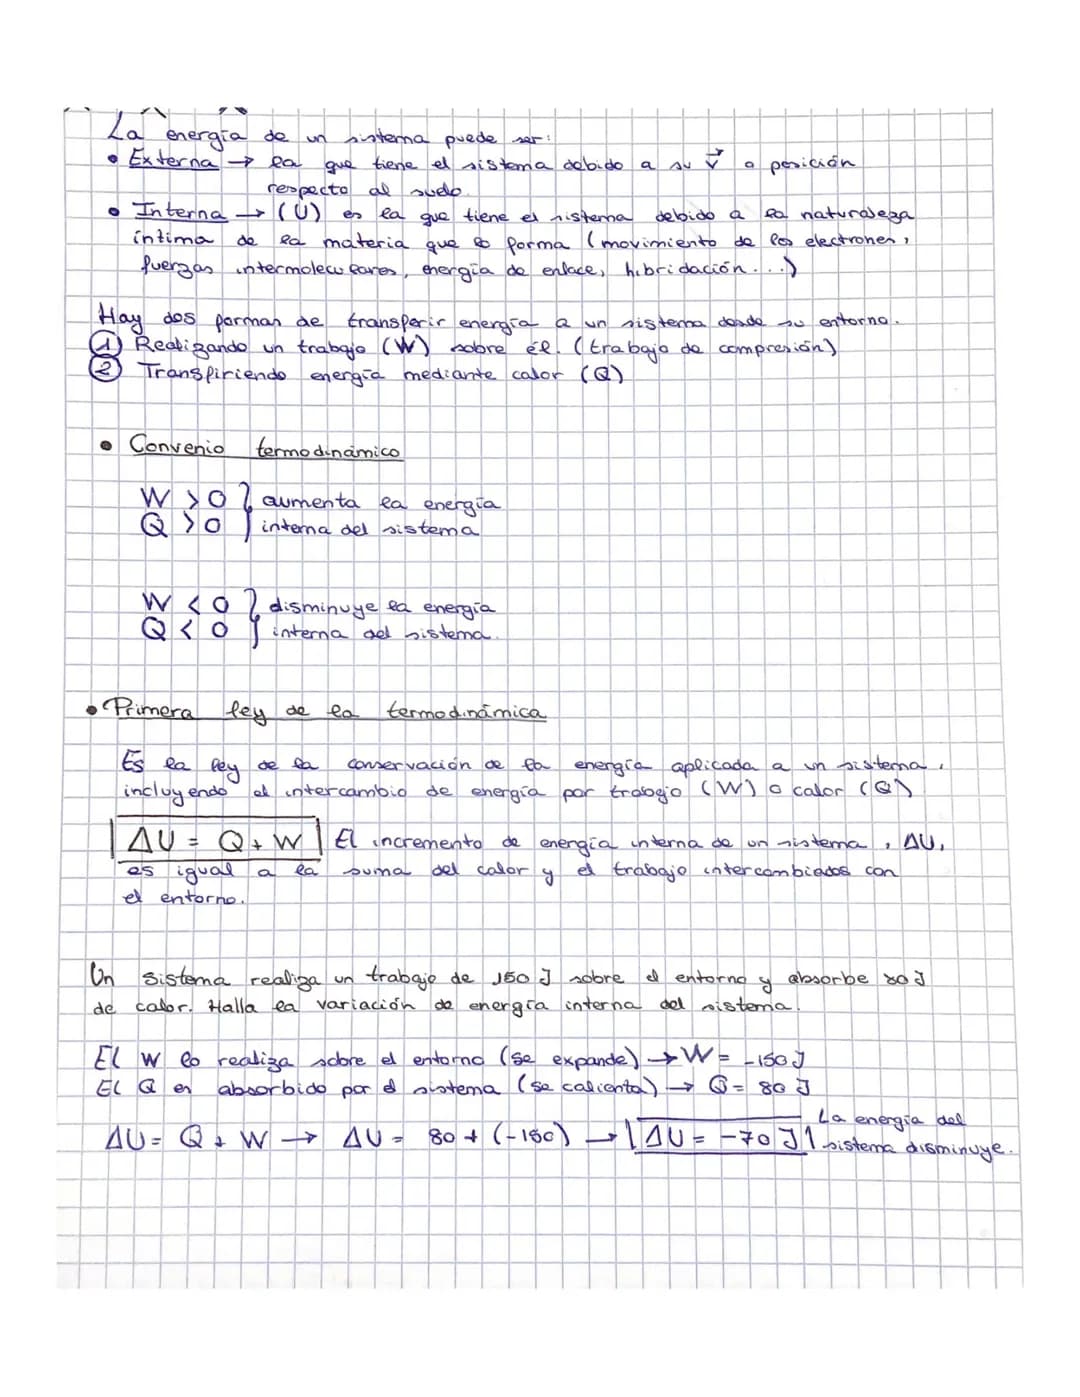 La energía de un sistema puede ser:
• Externa → la que tiene el sistema debido a su v⃗ o posición
respecto al suelo.
• Interna → (U) es la que tiene el sistema debido a la naturaleza
íntima de la materia que lo forma (movimiento de los electrones,
fuerzas intermoleculares, energía de enlace, hibridación...)
Hay dos formas de transferir energía a un sistema desde su entorno.
① Realizando un trabajo (W) sobre él. (trabajo de compresión)
② Transfiriendo energía mediante calor (Q)
• Convenio termodinámico
W > 0 } aumenta la energía
Q > 0 } interna del sistema
W < 0 } disminuye la energía
Q < 0 } interna del sistema.
• Primera ley de la termodinámica
Es la ley de la conservación de la energía aplicada a un sistema,
incluyendo el intercambio de energía por trabajo (W) o calor (Q)
ΔU = Q + W El incremento de energía interna de un sistema, ΔU,
es igual a la suma del calor y el trabajo intercambiados con
el entorno.
Un sistema realiza un trabajo de 150 J sobre el entorno y absorbe 80 J
de calor. Halla la variación de energía interna del sistema.
El W lo realiza sobre el entorno (se expande) → W = -150 J
El Q es absorbido por el sistema (se calienta) → Q = 80 J
ΔU = Q + W → ΔU = 80 + (-150) → ΔU = -70 J La energía del
sistema disminuye.